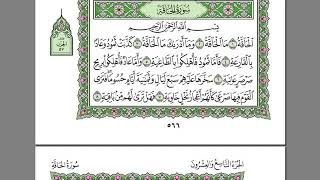 سُورَةُ الْحَاقَّةِ
بِسْمِ اللَّهِ الرَّحْمَٰنِ الرَّحِيمِ
الْحَاقَّةُ ١ مَا الْحَاقَّةُ ٢ وَمَا أَدْرَاكَ مَا الْحَاقَّةُ ٣ كَذَّبَتْ ثَمُودُ وَعَادٌ
بِالْقَارِعَةِ ٤ فَأَمَّا ثَمُودُ فَأُهْلِكُوا بِالطَّاغِيَةِ ٥ وَأَمَّا عَادٌ فَأُهْلِكُوا بِرِيحٍ
صَرْصَرٍ عَاتِيَةٍ ٦ سَخَّرَهَا عَلَيْهِمْ سَبْعَ لَيَالٍ وَثَمَانِيَةَ أَيَّامٍ حُسُومًا فَتَرَى
الْقَوْمَ فِيهَا صَرْعَىٰ كَأَنَّهُمْ أَعْجَازُ نَخْلٍ خَاوِيَةٍ ٧ فَهَلْ تَرَىٰ لَهُم مِّن بَاقِيَةٍ ٨
٥٦٦
الجزء التاسع والعشرون
سورة الحاقة